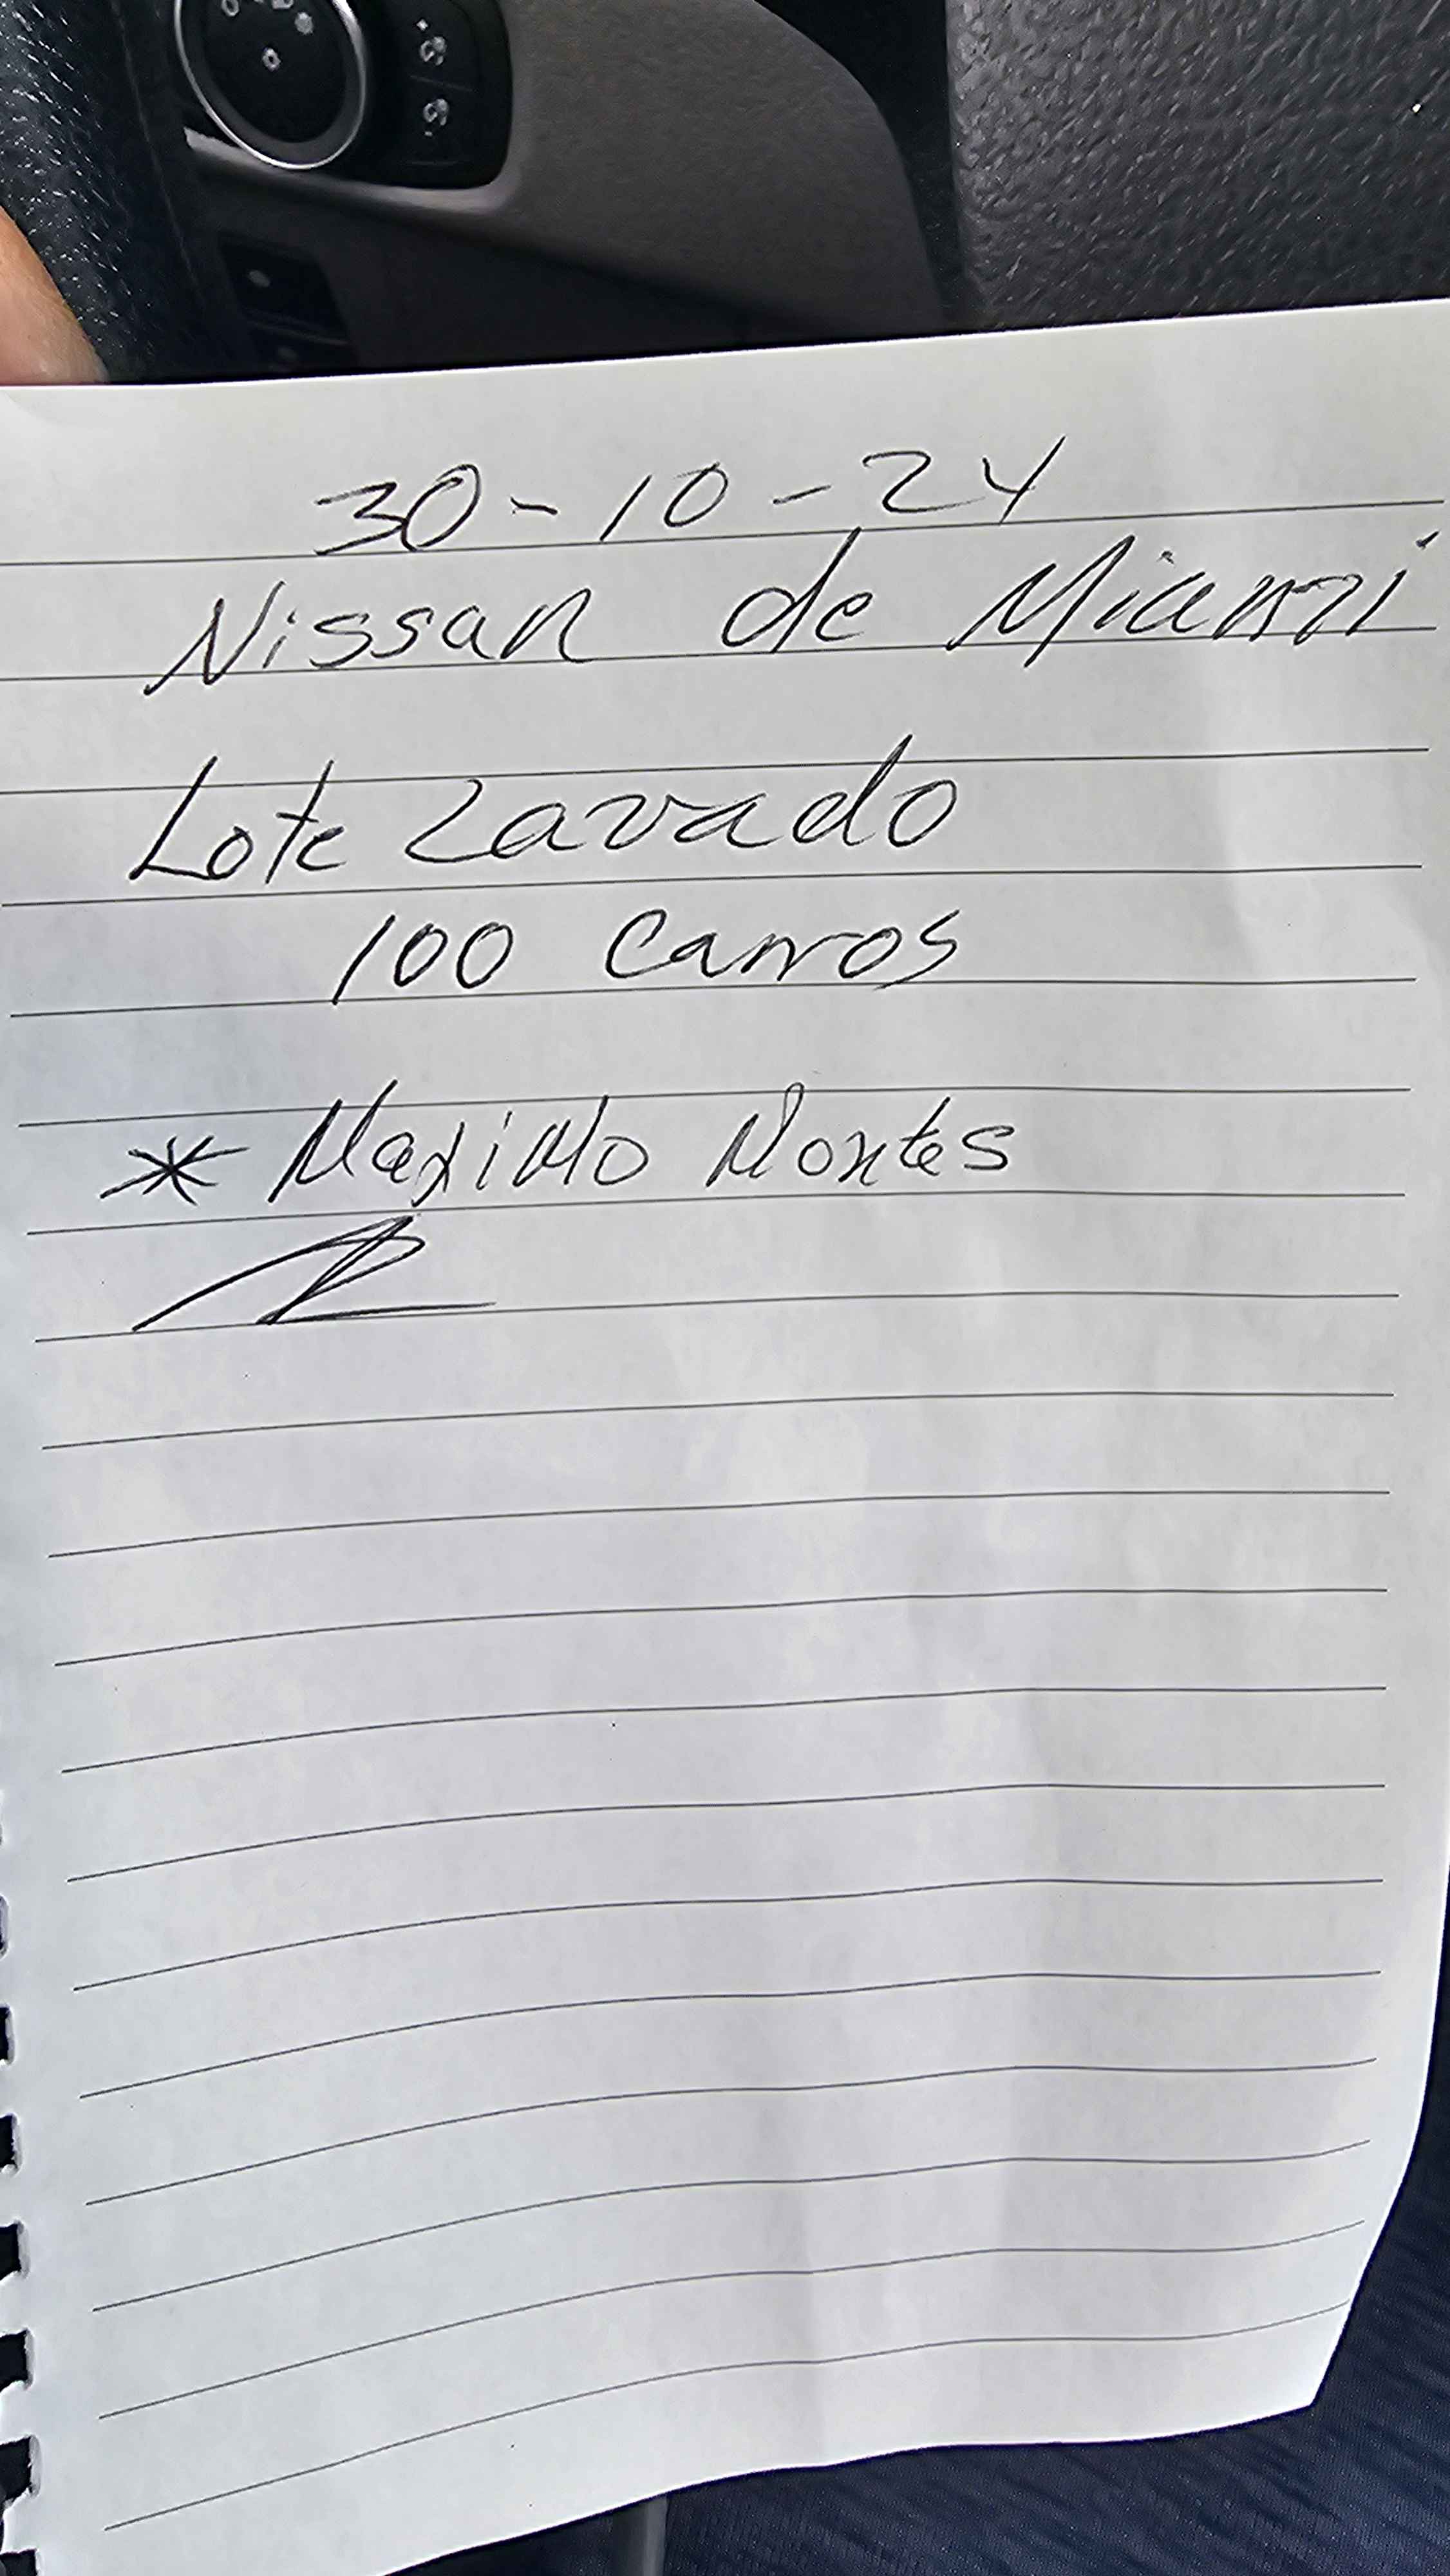 30-10-24
Nissan de Miami
Lote Lavado
100 Carros
* Maximo Montes